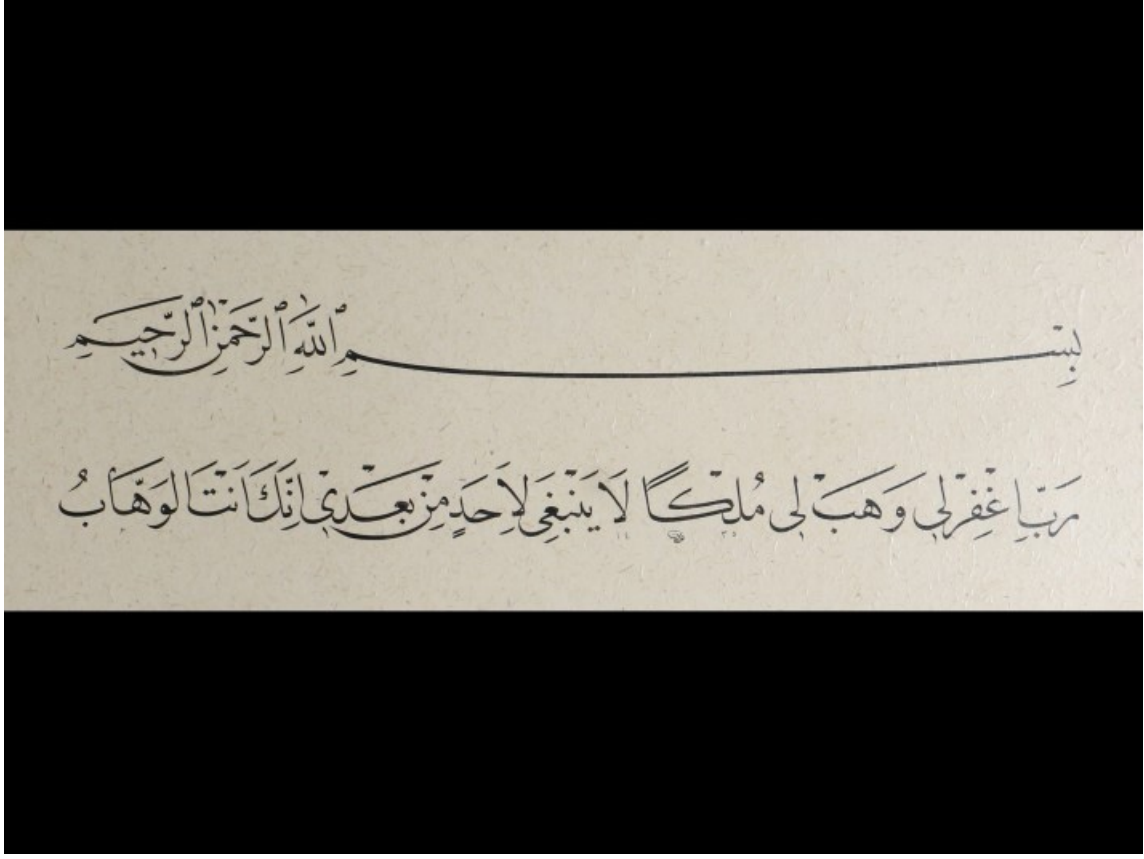 بِسْمِ ٱللَّهِ ٱلرَّحْمَنِ ٱلرَّحِيمِ
رَبِّ اغْفِرْ لِي وَهَبْ لِي مُلْكًا لَا يَنْبَغِي لِأَحَدٍ مِنْ بَعْدِي إِنَّكَ أَنْتَ الوَهَّابُ